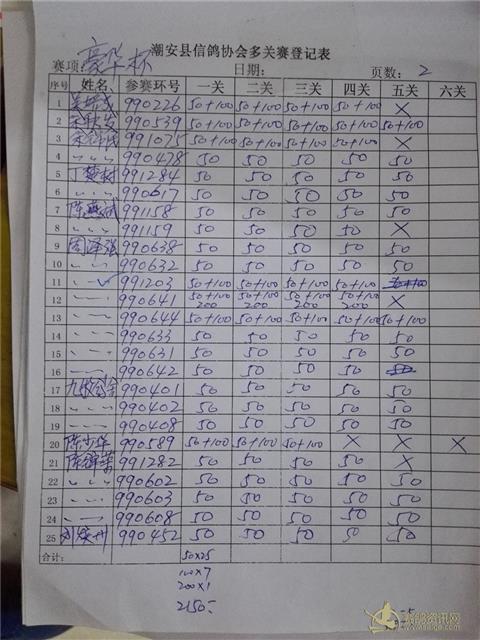 潮安县信鸽协会多关赛登记表
赛项: 豪华杯 日期: 页数: 2
序号 姓名 参赛环号 一关 二关 三关 四关 五关 六关
1 990226 50+100 50+100 50+100 50+100 ×
2 990539 50+100 50+100 50+100 50+100 50+100
3 991075 50+100 50+100 50+100 50+100 ×
4 〃 〃 〃 990478 50 50 50 50 50
5 991284 50 50 50 50 50
6 〃 〃 〃 990617 50 50 50 50 50
7 991158 50 50 50 50 50
8 〃 〃 〃 991159 50 50 50 50 ×
9 周泽强 990638 50 50 50 50 50
10 〃 〃 〃 990632 50 50 50 50 50
11 〃 〃 991203 50+100 50+100 50+100 50+100 50+100
12 〃 〃 〃 990641 50+100 200 50+100 200 50+100 200 50+100 200 ×
13 〃 〃 〃 990644 50+100 50+100 50+100 50+100 50+100
14 〃 〃 〃 990633 50 50 50 50 50
15 〃 〃 〃 990631 50 50 50 50 50
16 〃 〃 〃 990642 50 50 50 50 50
17 990401 50 50 50 50 50
18 〃 〃 〃 990402 50 50 50 50 50
19 〃 〃 〃 990408 50 50 50 50 50
20 陈少华 990589 50+100 50+100 50+100 × × ×
21 991282 50 50 50 50 ×
22 〃 〃 〃 990602 50 50 50 50 50
23 〃 〃 〃 990603 50 50 50 50 50
24 〃 〃 〃 990608 50 50 50 50 50
25 990452 50 50 50 50 50
合计:
50×25
100×7
200×1
2150